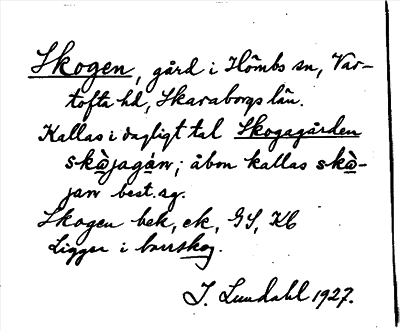 Skogen, gård i Hömbs sn, Var-
tofta hd, Skaraborgs län.
Kallas i dagligt tal Skogagården
skò̀jagán; åbon kallas skò̀-
jan best. sg.
Skogen bek, ek, GS, Kb
Ligger i barrskog.
J. Lundahl 1927.